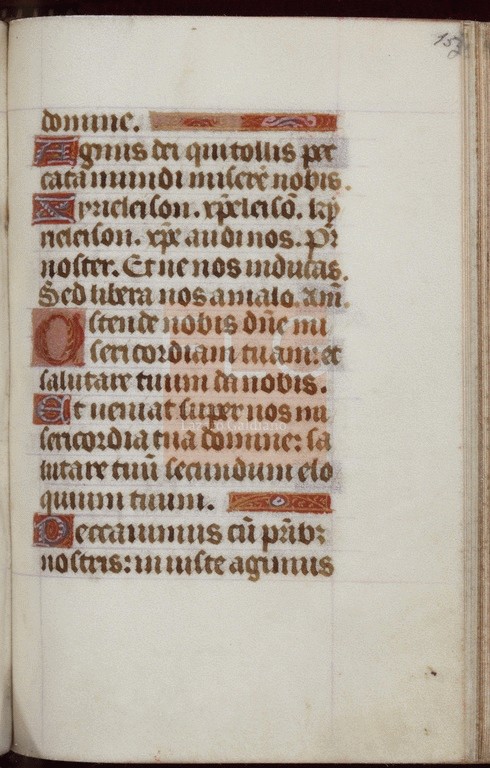 153
domine.
Agnus dei qui tollis pec
cata mundi miserē nobis.
Kyrieleison. xp̄eleisō. ky
rieleison. xp̄e audi nos. Pr̄
noster. Et ne nos inducas.
Sed libera nos a malo. Am̄.
Ostende nobis dn̄e mi
sericordiam tuam: et
salutare tuum da nobis.
Et veniat super nos mi
sericordia tua domine: sa
lutare tuū secundum elo
quium tuum.
Peccavimus cū pr̄ibꝫ
nostris: iniuste agimus
Lázaro Galdiano